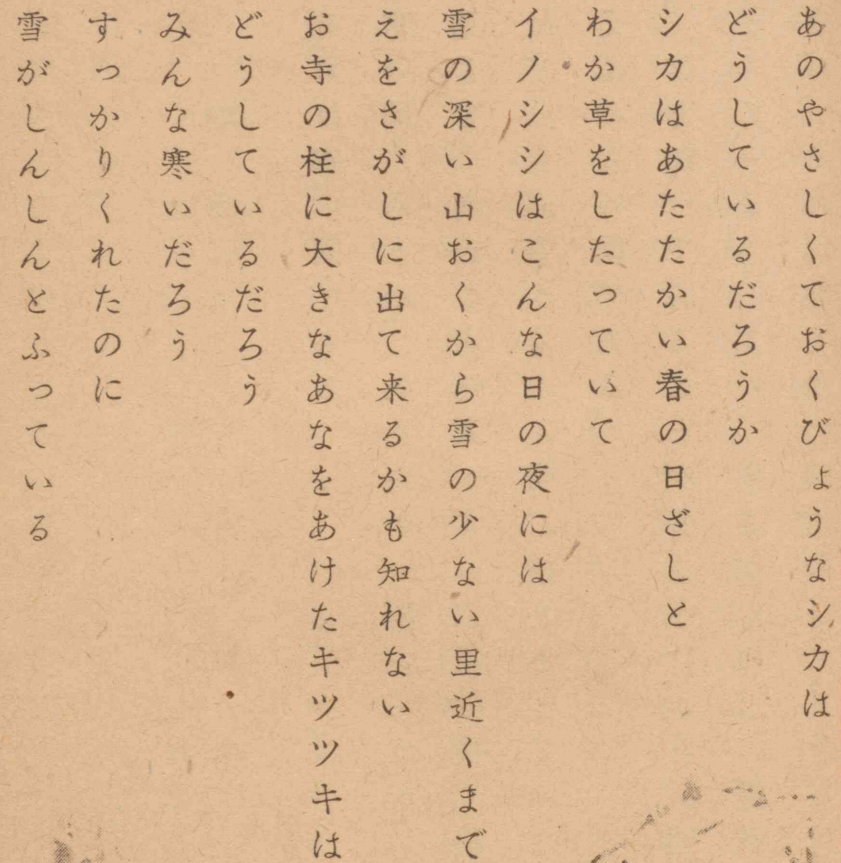 あのやさしくておくびょうなシカは
どうしているだろうか
シカはあたたかい春の日ざしと
わか草をしたっていて
イノシシはこんな日の夜には
雪の深い山おくから雪の少ない里近くまで
えをさがしに出て来るかも知れない
お寺の柱に大きなあなをあけたキツツキは
どうしているだろう
みんな寒いだろう
すっかりくれたのに
雪がしんしんとふっている